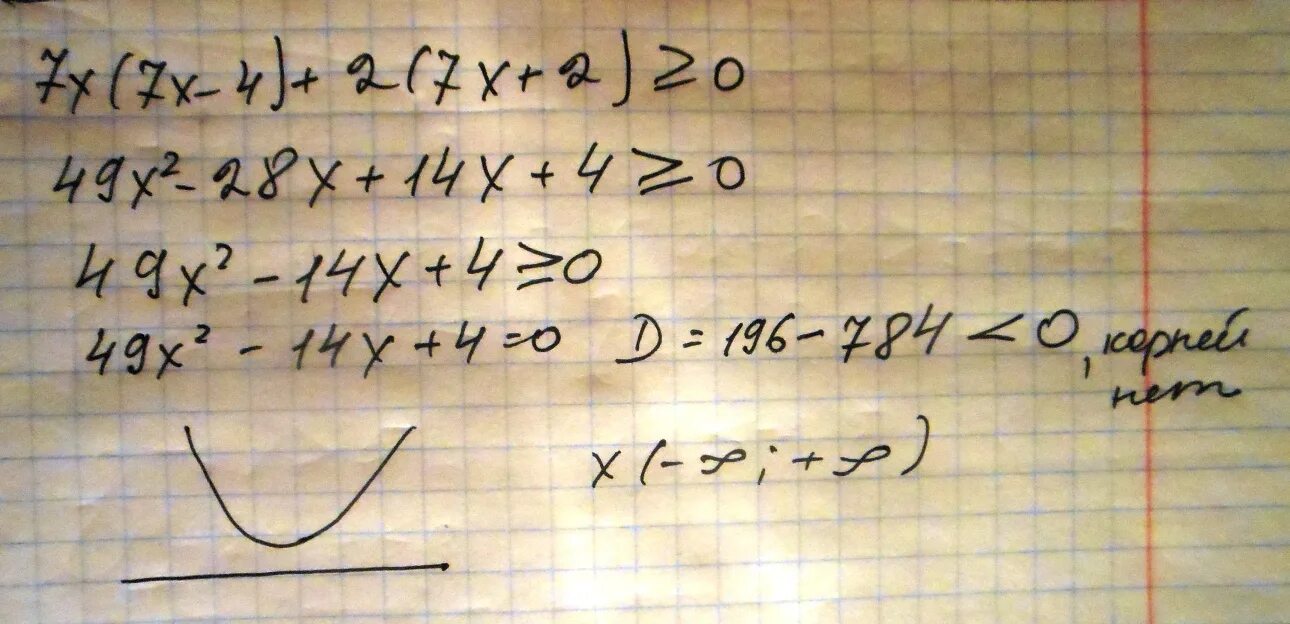 7x(7x-4)+2(7x+2)≥0
49x²-28x+14x+4≥0
49x²-14x+4≥0
49x²-14x+4=0 D=196-784<0, корней
нет
x(-∞;+∞)